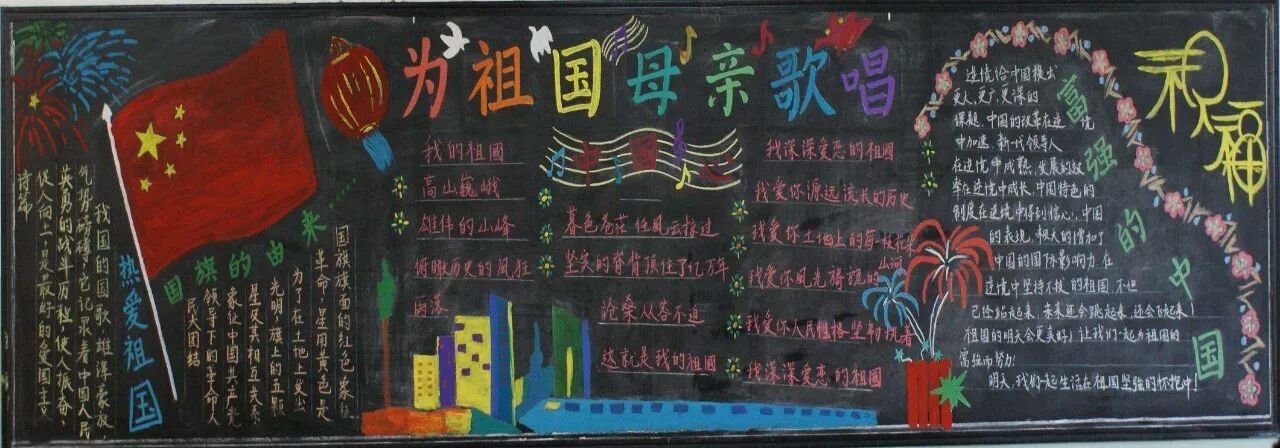 为祖国母亲歌唱
祝福
热爱祖国
我国的国歌雄浑豪放,
气势磅礴,它记录着中国人民
共勇的战斗历程,使人振奋,
促人向上,是最好的爱国主义
诗篇
国旗的由来……
国旗旗面的红色象征
革命,星用黄色
为了在土地上
光明,旗上的五颗
星及其相互关系
象征中国共产党
领导下的革命人
民大团结
我的祖國
高山巍峨
雄伟的山峰
俯瞰历史的風狂
雨落
中國
暮色苍茫 任風云掠过
坚实的脊背顶住了亿万年
沧桑从容不迫
这就是我的祖國
我深深爱恋的祖国
我爱你源远流长的历史
我爱你土地上的每一
我爱你風光旖旎的山河
我爱你人民性格坚韧执著
我深深爱恋的祖国
富强的中国
逆境给中国提出
更人、更广、更深的
课题,中国的改革在逆境
中加速,新一代领导人
在逆境中成熟,发展的
率在逆境中成长,中国特色的
制度在逆境中得到信心,中国
的表现,极大的增加了
中国的国际影响力,在
逆境中坚持不拔的祖国,不但
已经站起来,未来还会跳起来,还会
祖国的明天会更美好!让我们一起为祖国的
富强而努力
明天,我们一起生活在祖国坚强的怀抱中!